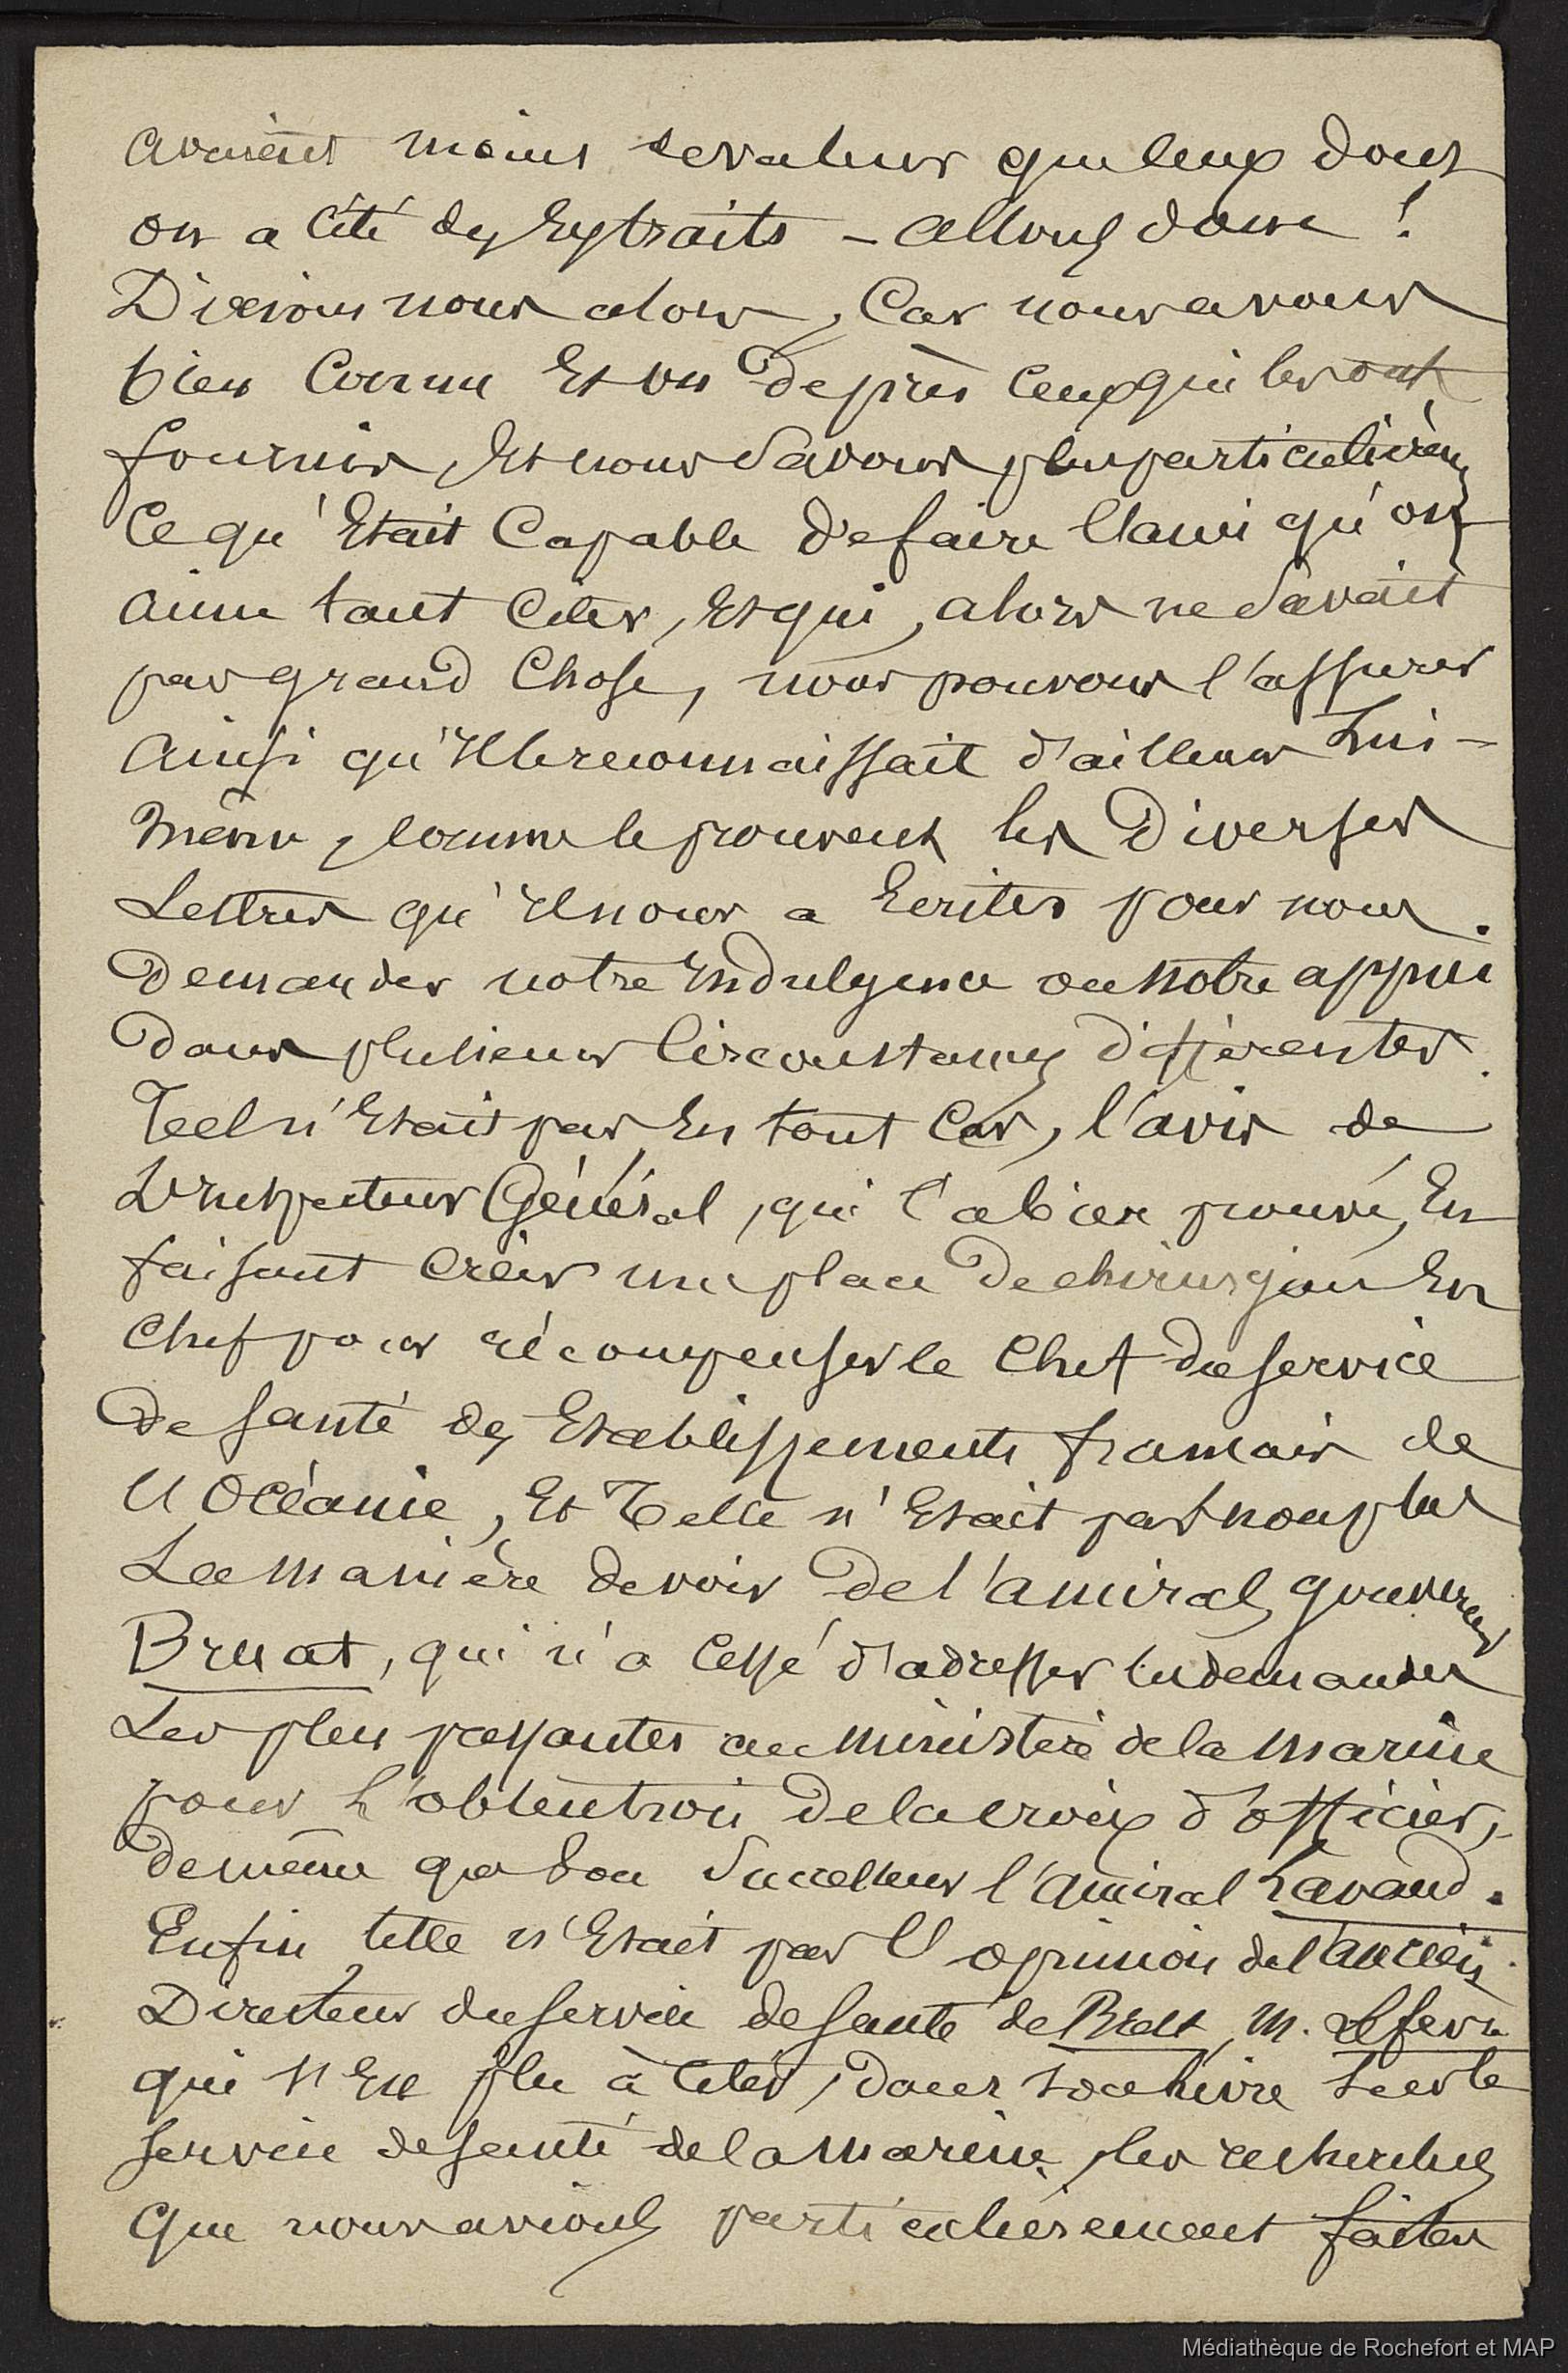 avaient moins de valeur que ceux dont
on a cité des Extraits - allons donc !
Dirions nous alors, Car nous avons
bien Connu Et vu de près Ceux qui les ont
fournis, Et nous savons plus particulièrem
Ce qu'Etait Capable de faire l'ami qu'on
aime tant Citer, Et qui, alors ne Savait
pas grand Chose, nous pouvons l'assurer
Ainsi qu'Il le reconnaissait d'ailleurs Lui-
Même, comme le prouvent les Diverses
Lettres qu'Il nous a Ecrites pour nous
Demander notre Indulgence ou Notre appui
dans plusieurs Circonstances différentes.
Tel n'Etait pas, En tout Cas, l'avis de
L'Inspecteur Général, qui l'a bien prouvé, En
faisant Créer une place de chirurgien En
Chef pour récompenser le Chef du service
De santé des Etablissements français de
l'Océanie, Et Telle n'Etait pas non plus
La Manière de voir De l'amiral gouverneur
Bruat, qui n'a Cessé d'adresser les demandes
Les plus pressantes au Ministère de la Marine
pour L'obtention De la croix d'officier,
De même que Son Successeur l'Amiral Lavaud.
Enfin telle n'Etait pas l'opinion de l'ancien
Directeur du service de santé de Brest, M. Lefevre
qui N'Eut plu à Citer, dans son livre Sur le
service de santé de la Marine, les recherches
Que nous avions particulièrement faites
Médiathèque de Rochefort et MAP